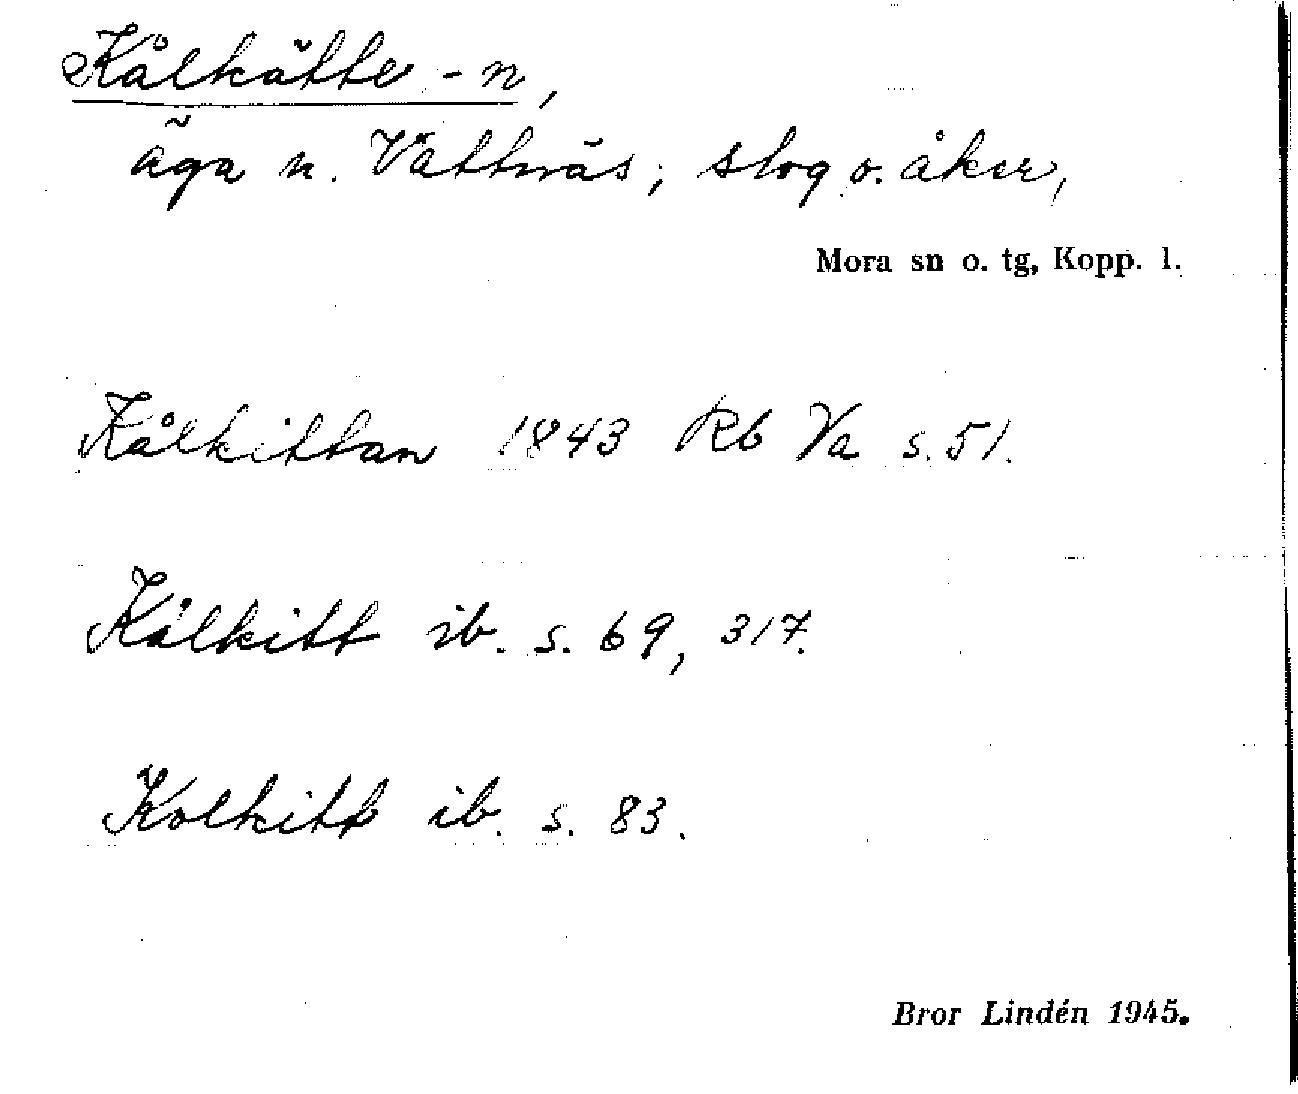 Kålkätte -n,
äga n. Vattnäs; slog o. åker,
Mora sn o. tg, Kopp. l.
Kålkittan 1843 Rb Va s. 51.
Kålkitt ib. s. 69, 317.
Kolkitt ib. s. 83.
Bror Lindén 1945.